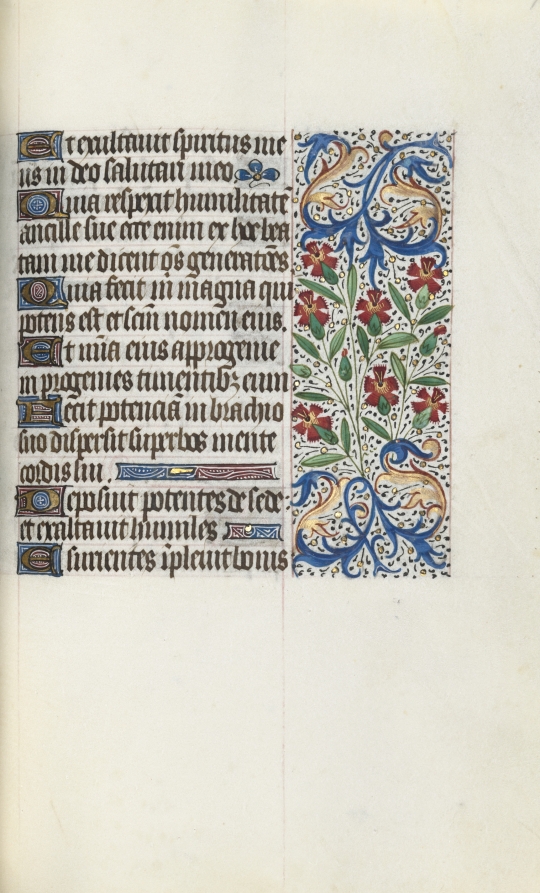 Et exultauit spiritus me
us in deo salutari meo
Quia respexit humilitatē
ancille sue ecce enim ex hoc bea
tam me dicent oēs generatiōes
Quia fecit m̄ magna qui
potens est et scm̄ nomen eius.
Et mīa eius a progenie
in progenies timentibꝫ eum
Fecit potenciā in brachio
suo dispersit superbos mente
cordis sui.
Deposuit potentes de sede.
et exaltauit humiles
Esurientes īpleuit bonis